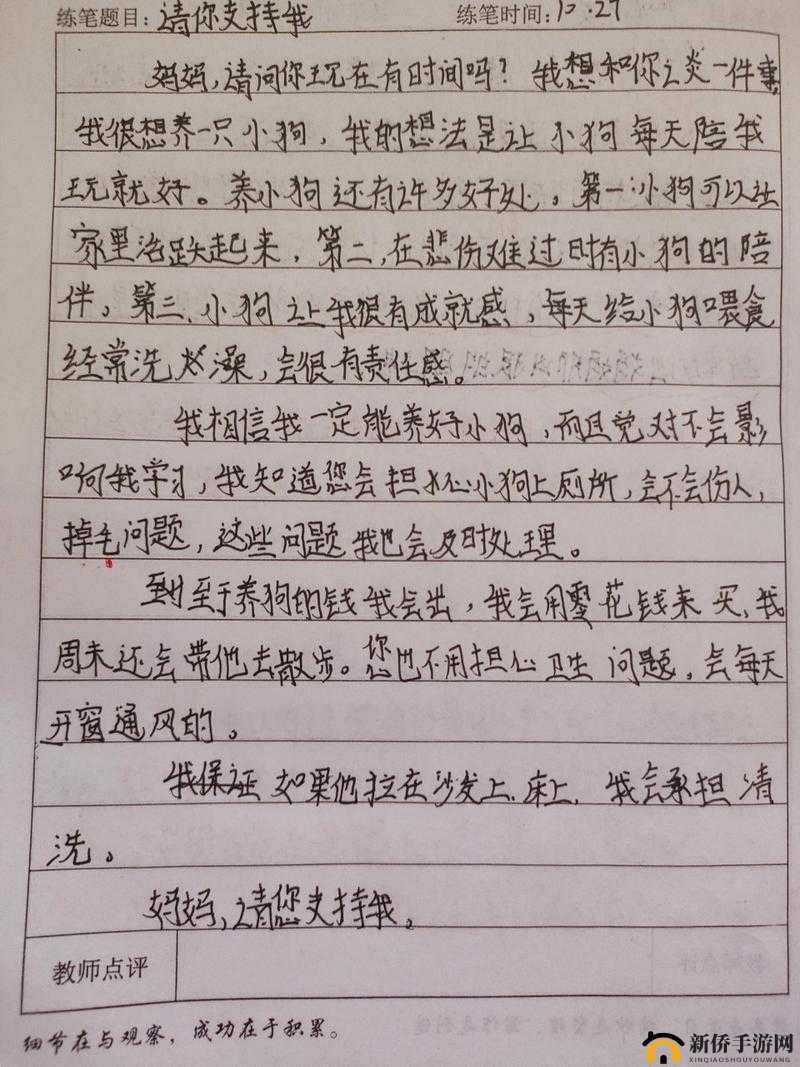 练笔题目：请你支持我 练笔时间：10.27
妈妈，请问你现在有时间吗？我想和你谈一件事，
我很想养一只小狗，我的想法是让小狗每天陪我
玩就好。养小狗还有许多好处，第一：小狗可以让
家里活跃起来，第二，在悲伤难过时有小狗的陪
伴。第三、小狗让我很有成就感，每天给小狗喂食
经常洗澡，会很有责任感。
我相信我一定能养好小狗，而且觉对不会影
响我学习，我知道您会担心小狗上厕所，会不会伤人，
掉毛问题，这些问题我也会及时处理。
至于养狗的钱我会出，我会用零花钱来买，我
周末还会带他去散步。您也不用担心卫生问题，会每天
开窗通风的。
我保证如果他拉在沙发上、床上，我会承担清
洗。
妈妈，请您支持我。
教师点评
细节在与观察，成功在于积累。
新侨手游网
XINQIAOSHOUYOUWANG